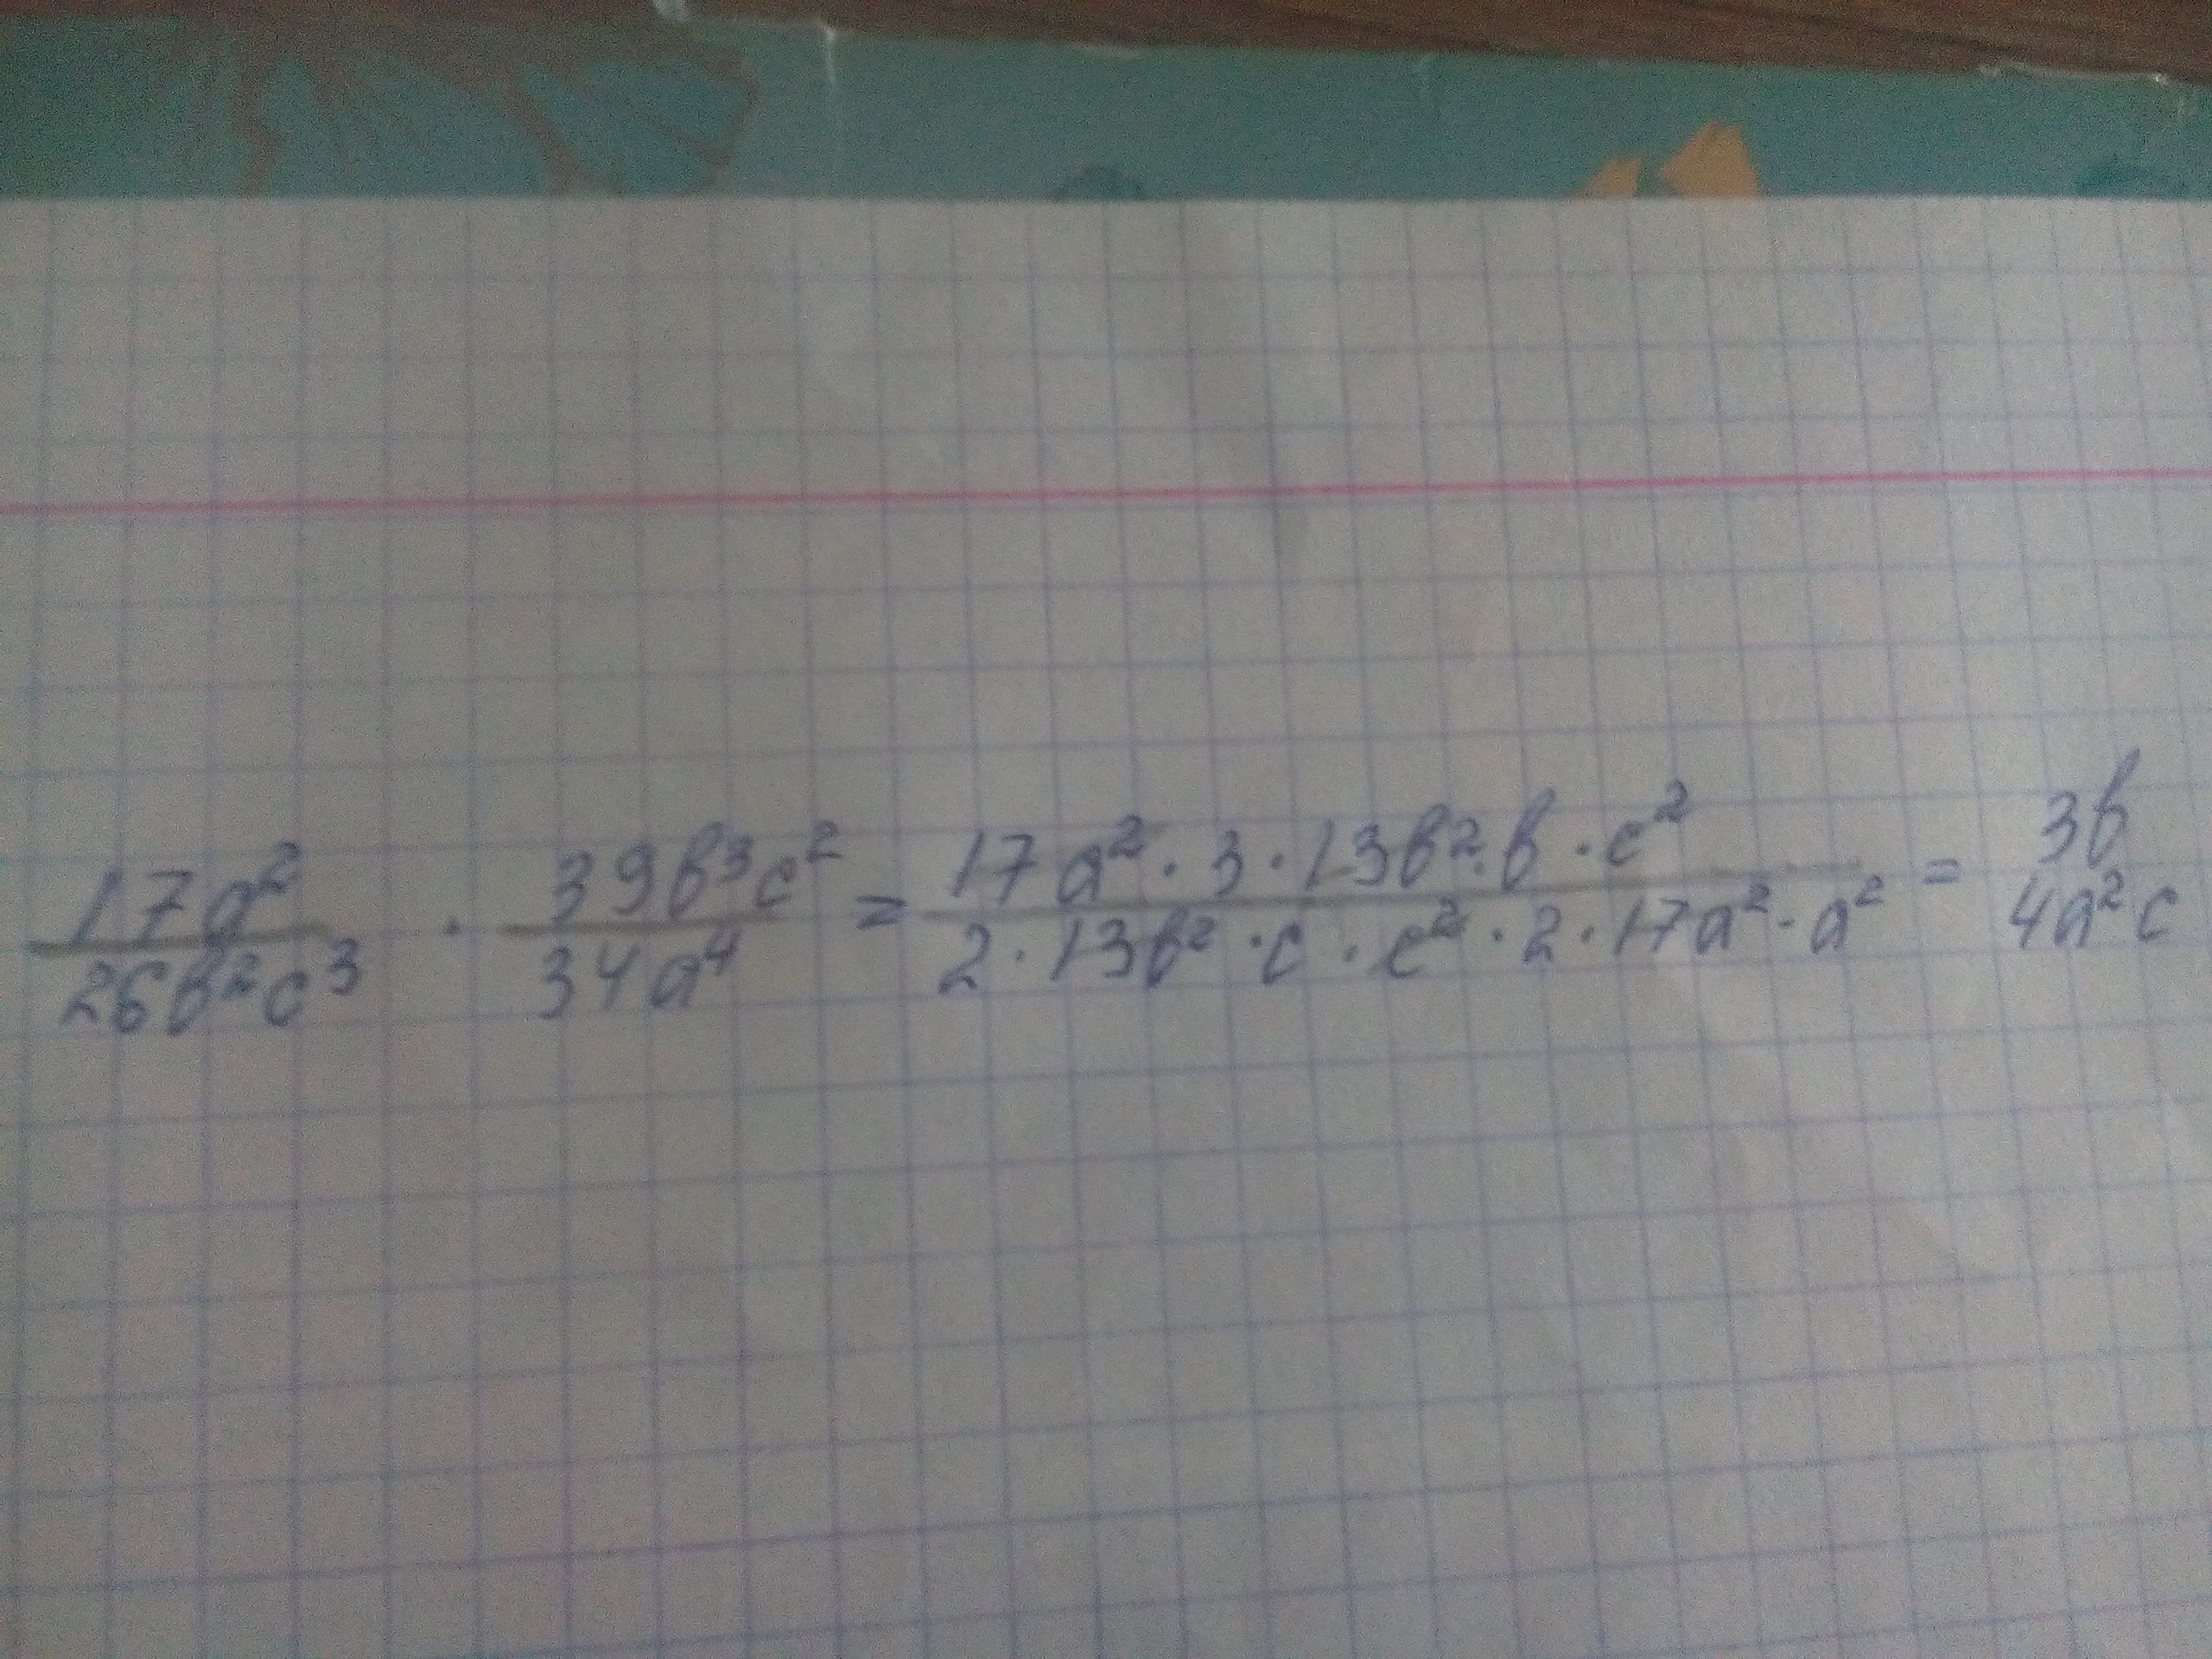 17a²/26b²c³ · 39b³c²/34a⁴ = 17a²·3·13b²·b·c²/2·13b²·c·c²·2·17a²·a² = 3b/4a²c